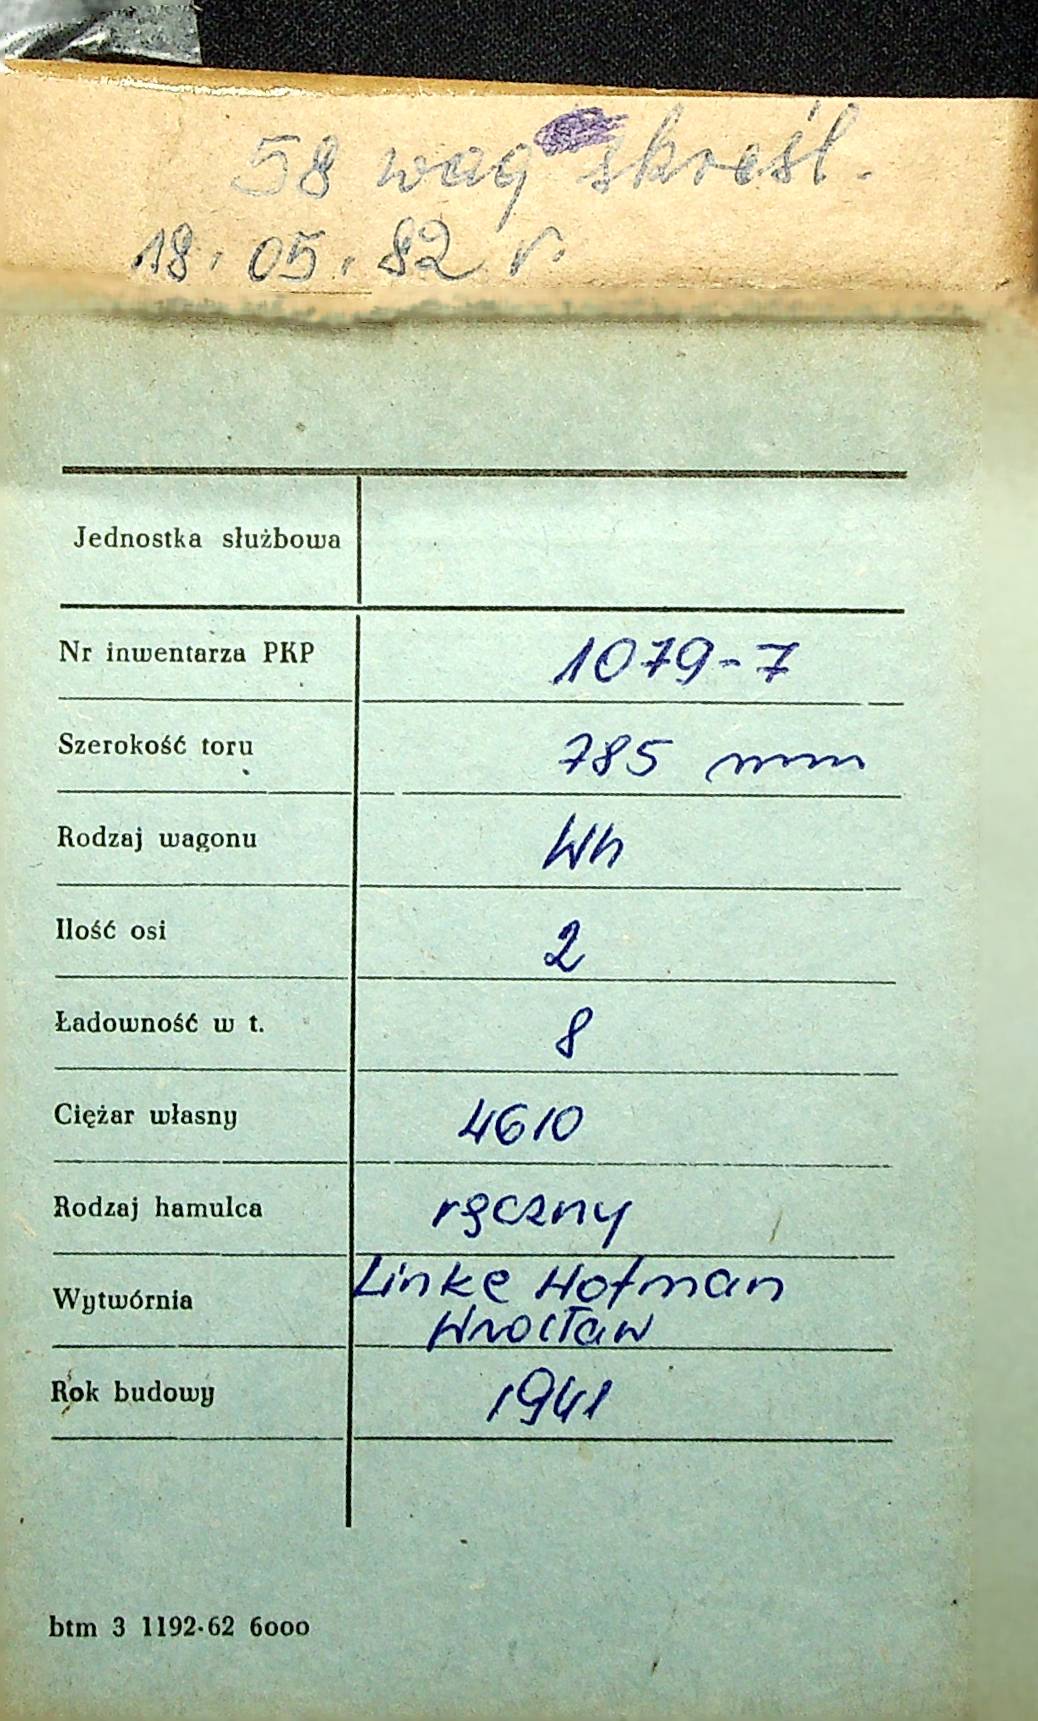 58 wag skreśl.
18.05.82 r.
Jednostka służbowa
Nr inwentarza PKP 1079-7
Szerokość toru 785 mm
Rodzaj wagonu Wh
Ilość osi 2
Ładowność w t. 8
Ciężar własny 4610
Rodzaj hamulca ręczny
Wytwórnia Linke Hofman
Wrocław
Rok budowy 1941
btm 3 1192-62 6000